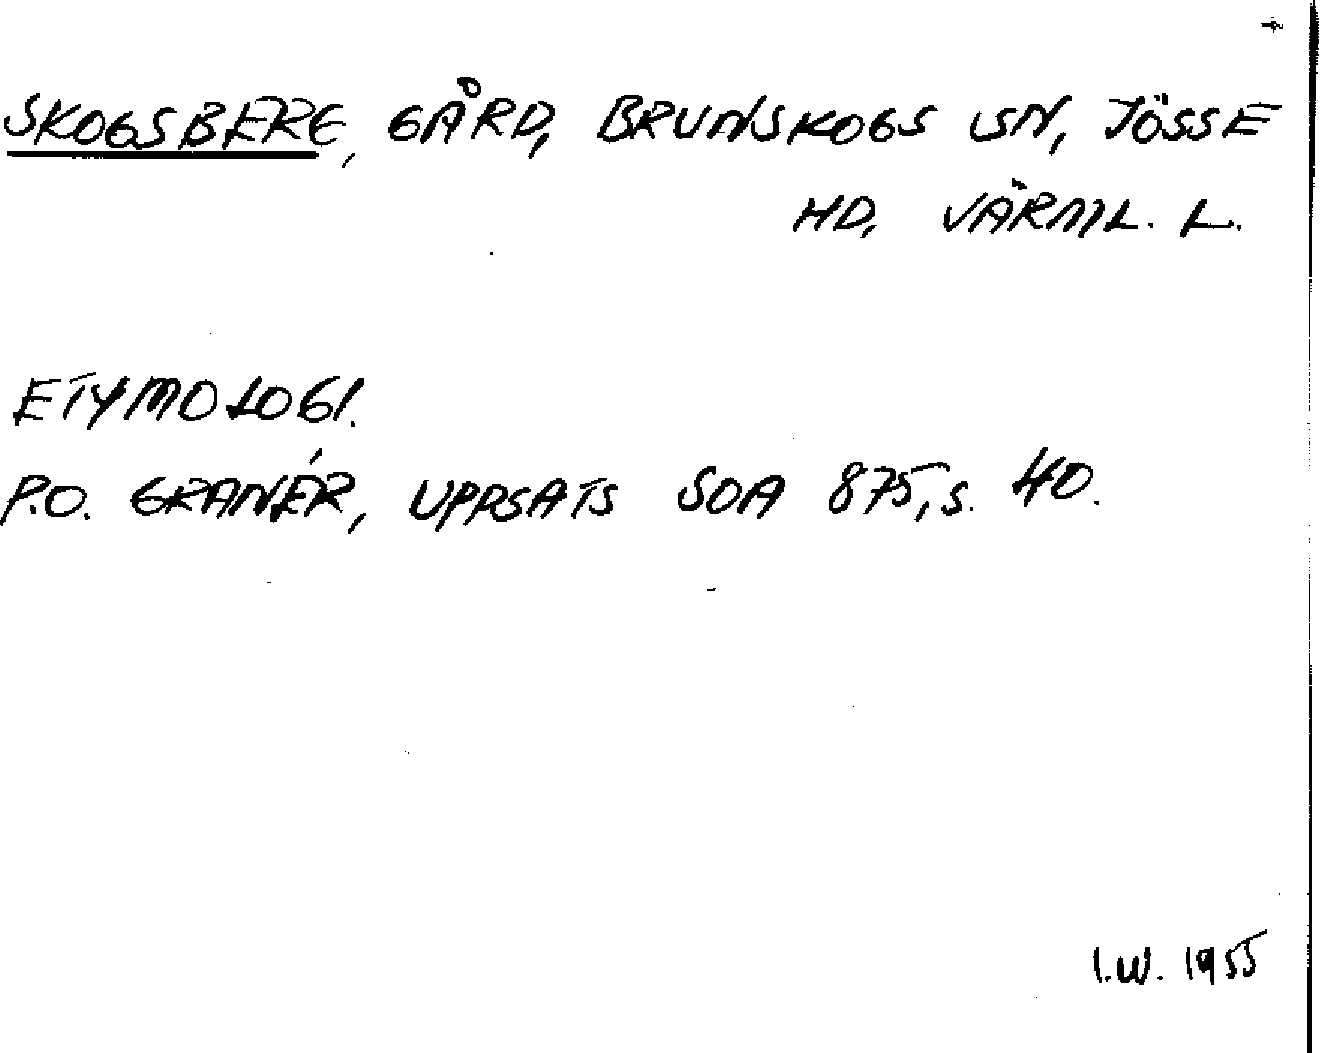 SKOGSBERG, GÅRD, BRUNSKOGS SN, JÖSSE
HD, VÄRML. L.
ETYMOLOGI.
P.O. GRANÉR, UPPSATS SOA 875, S. 40.
I.W. 1955